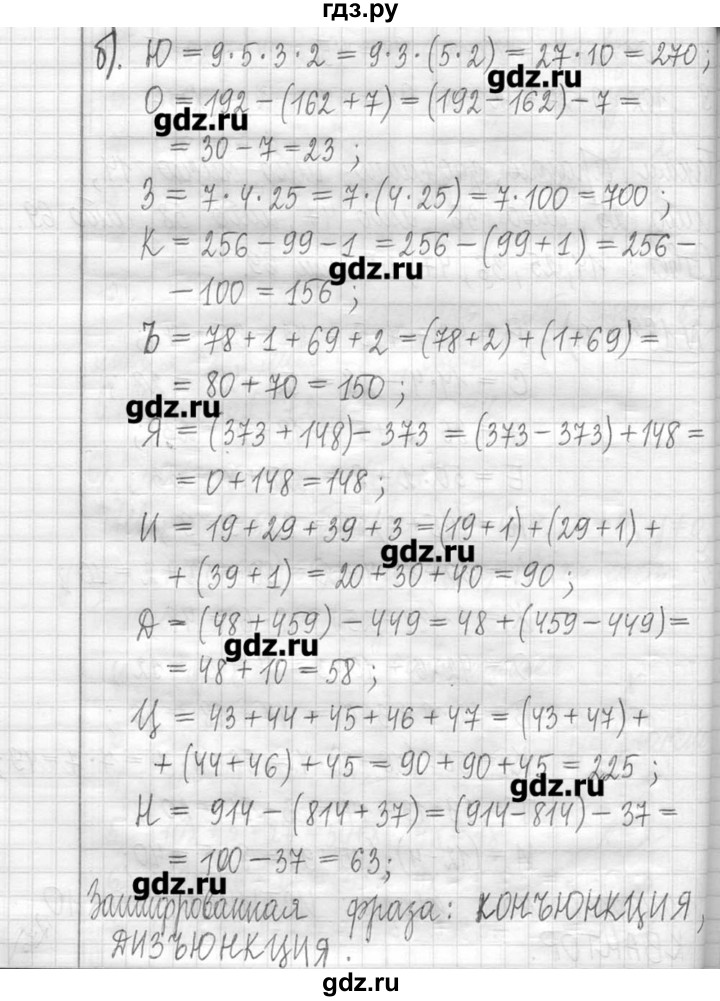 гдз.ру
б). Ю = 9·5·3·2 = 9·3·(5·2) = 27·10 = 270;
gdz.ru
О = 192 − (162 + 7) = (192 − 162) − 7 =
gdz.ru
= 30 − 7 = 23 ;
З = 7·4·25 = 7·(4·25) = 7·100 = 700 ;
К = 256 − 99 − 1 = 256 − (99 + 1) = 256 −
gdz.ru
− 100 = 156 ;
Ъ = 78 + 1 + 69 + 2 = (78 + 2) + (1 + 69) =
= 80 + 70 = 150 ;
gdz.ru
Я = (373 + 148) − 373 = (373 − 373) + 148 =
= 0 + 148 = 148 ;
И = 19 + 29 + 39 + 3 = (19 + 1) + (29 + 1) +
gdz.ru
+ (39 + 1) = 20 + 30 + 40 = 90 ;
Д − (48 + 459) − 449 = 48 + (459 − 449) =
gdz.ru
= 48 + 10 = 58 ;
Ц = 43 + 44 + 45 + 46 + 47 = (43 + 47) +
+ (44 + 46) + 45 = 90 + 90 + 45 = 225 ;
gdz.ru
Н = 914 − (814 + 37) = (914 − 814) − 37 =
= 100 − 37 = 63;
gdz.ru
Зашифрованная фраза: КОНЪЮНКЦИЯ,
ДИЗЪЮНКЦИЯ.
gdz.ru